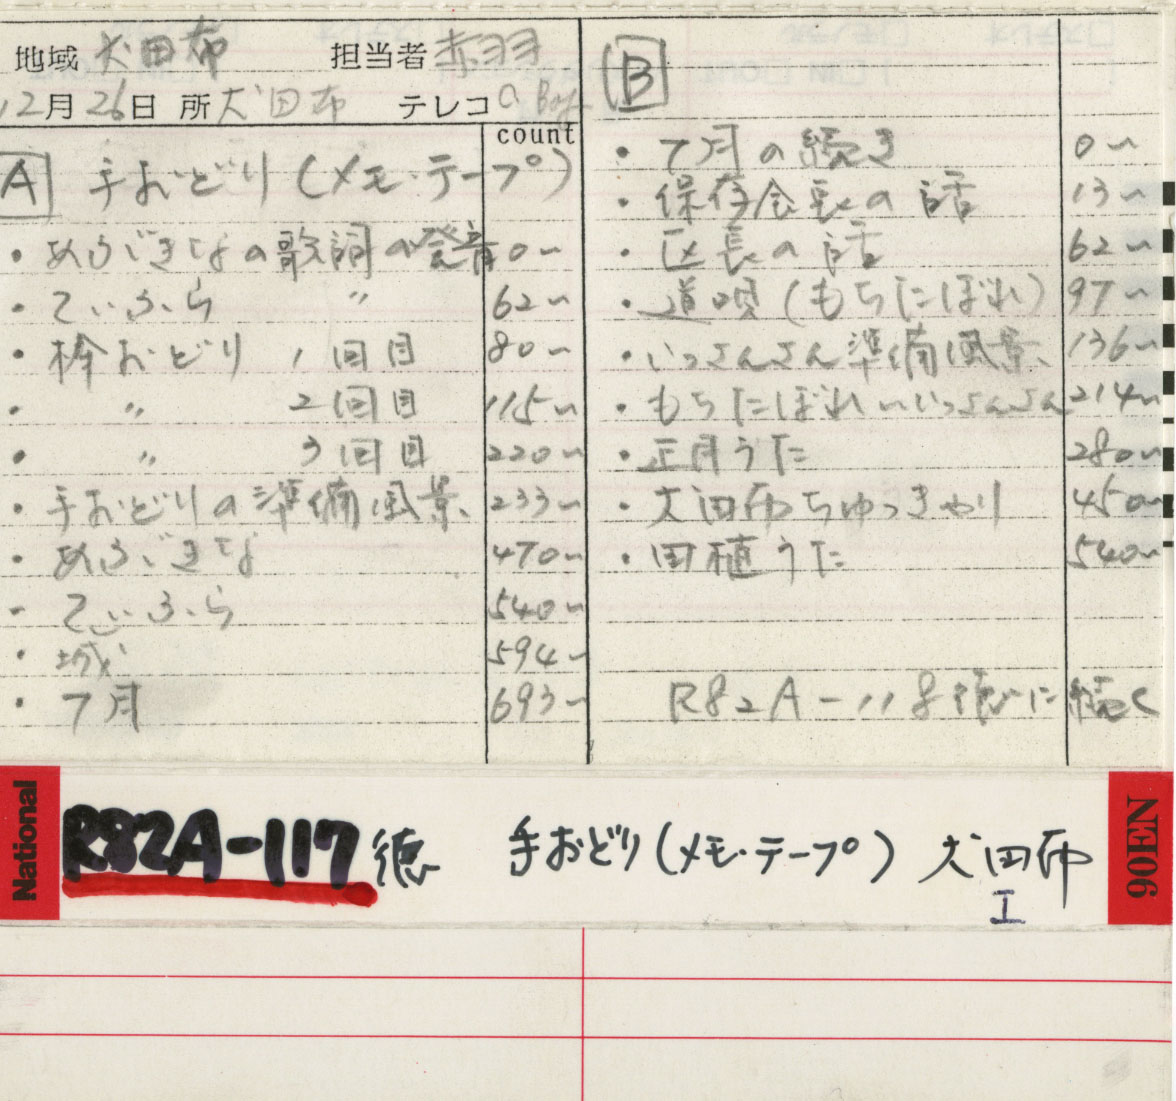 地域 犬田布 担当者 赤羽
12月26日 所 犬田布 テレコ
count
A 手おどり(メモ・テープ)
・めらべきなの歌詞の発音 0〜
・てぃふら 〃 62〜
・枠おどり 1回目 80〜
・〃 2回目 115〜
・〃 3回目 220〜
・手おどりの準備風景 233〜
・めらべきな 470〜
・てぃふら 540〜
・城 594〜
・7月 693〜
B
・7月の続き 0〜
・保存会長の話 13〜
・区長の話 62〜
・道唄(もちたぼれ) 97〜
・いっさんさん準備風景 136〜
・もちたぼれ〜いっさんさん 214〜
・正月うた 280〜
・犬田布ちゅっきゃり 450〜
・田植うた 540〜
R82A-118徳に続く
National R82A-117 徳 手おどり(メモ・テープ) 犬田布 90EN
I